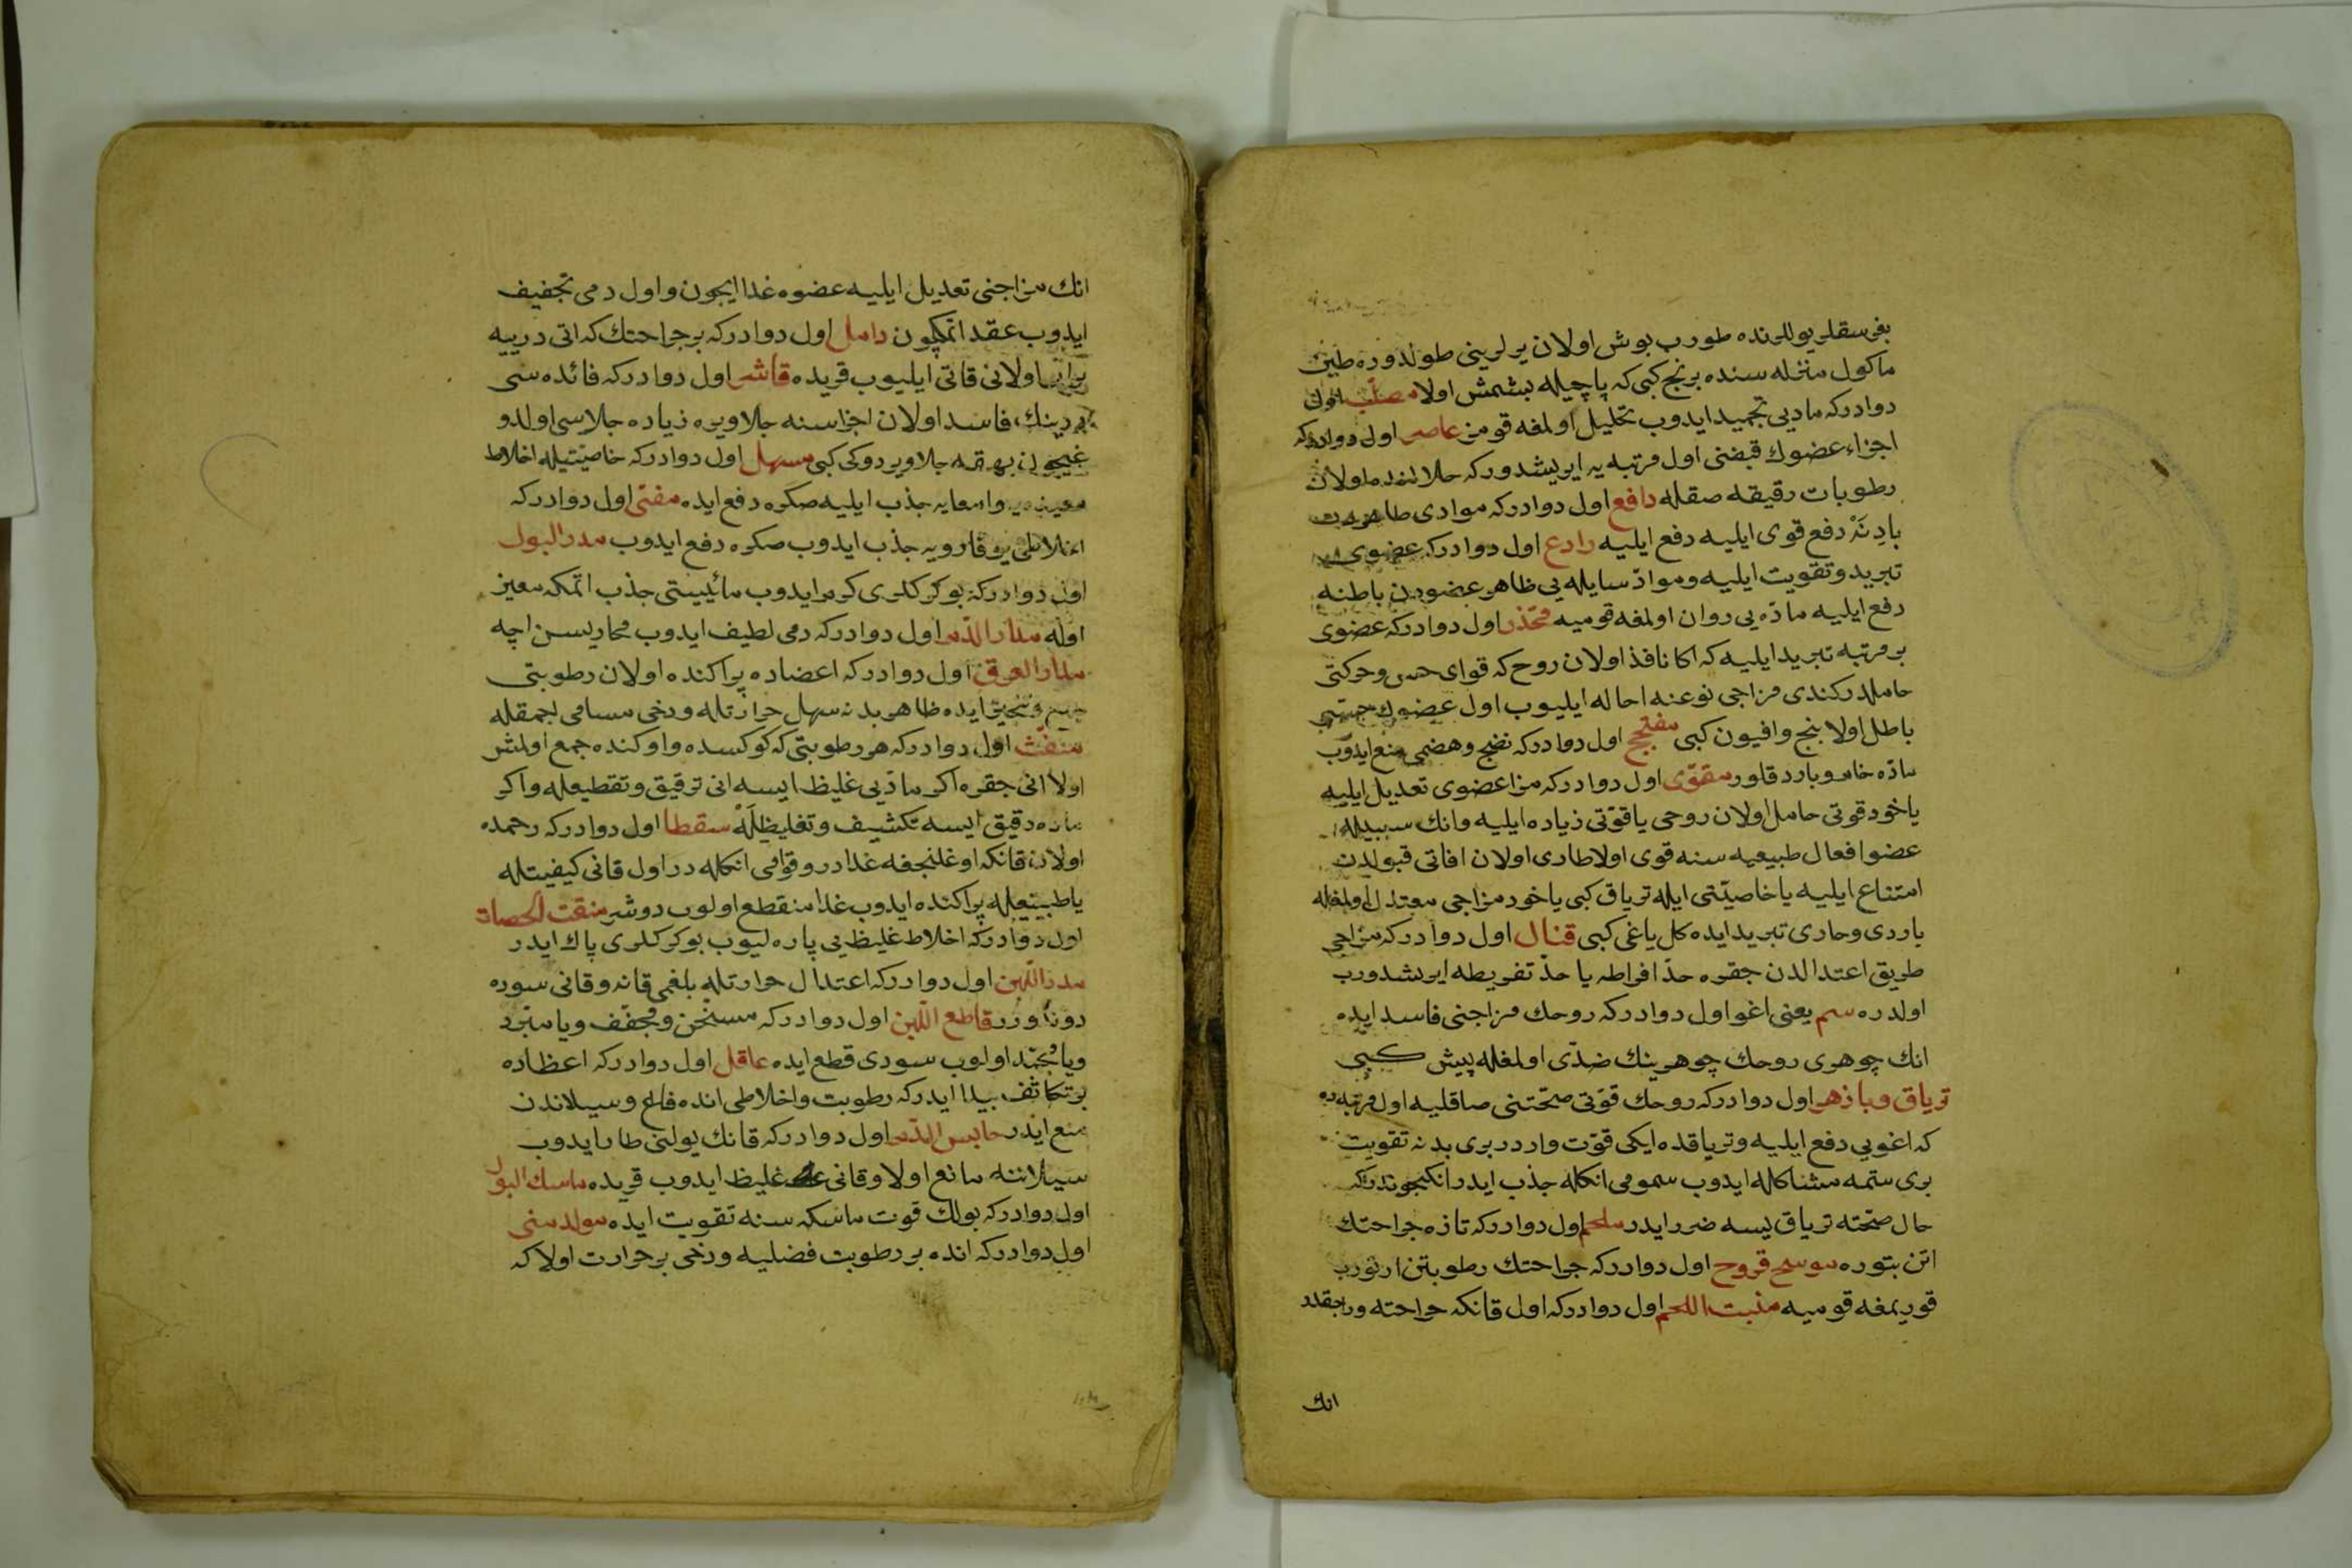 بغرسقلر يوللرنده طوروب بوش اولان يرلرينى طولدوره طين
ماكول منخله سنده برنج كبى كه پاچيله بشمش اولا مصلّب اول
دوادركه مادیى تجميد ايدوب تحليل اولمغه قومز عاصر اول دوادركه
اجزاء عضوك قبضنى اول مرتبه يه ايريشدوركه خلالنده اولان
رطوبات رقيقه صقله دافع اول دوادركه موادى
دفع قوى ايليه دفع ايليه رادع اول دوادركه عضوى
تبريد وتقويت ايليه ومواد سايله يى ظاهر عضودن باطنه
دفع ايليه مادّه يى روان اولمغه قوميه مخذر اول دوادركه عضوى
بر مرتبه تبريد ايليه كه اكا نافذ اولان روح كه قواى حس وحركتى
حاملدر كندى مزاجى نوعنه احاله ايليوب اول عضوك حسّى
باطل اولا بنج وافيون كبى مفجّج اول دوادركه نضج وهضمى منع ايدوب
مادّه خام وبارد قلور مقوّى اول دوادركه مزاعضوى تعديل ايليه
ياخود قوتى حامل اولان روحى ياقوّتى زياده ايليه وانك سببيله
عضو افعال طبيعيه سنه قوى اولا طارى اولان افاتى قبولدن
امتناع ايليه ياخاصيّتى ايله ترياق كبى ياخود مزاجى معتدل اولمغله
باردى وحارى تبريد ايده كل ياغى كبى قتال اول دوادركه مزاجى
طريق اعتدالدن جقره حدّ افراطه يا حدّ تفريطه ايرشدورب
اولدره سم يعنى اغو اول دوادركه روحك مزاجنى فاسد ايده
انك جوهرى روحك جوهرينك ضدّى اولمغله پيش كبى
ترياق وپاذهر اول دوادركه روحك قوّتى صحّتنى صاقليه اول مرتبه ده
كه اغويى دفع ايليه وترياقده ايكى قوّت واردر برى بدنه تقويت
برى سمّه مشاكله ايدوب سمومى انكله جذب ايدر انكيجوندركه
حال صحّته ترياق يسه ضرر ايدر ملحم اول دوادركه تازه جراحتك
اتن بتوره موسخ قروح اول دوادركه جراحتك رطوبتن ارتورب
قوريمغه قوميه منبت اللحم اول دوادركه اول قانكه جراحته ورجقدر
انك
انك مزاجنى تعديل ايليه عضوه غدا ايجون واول دمى تجفيف
ايدوب عقد اتمكچون دامل اول دوادركه بر جراحتك كه اتى دريیه
برابر اولانى قاتى ايليوب قريده قاشر اول دوادركه فائده سى
درينك فاسد اولان اجزاسنه جلا ويره زياده جلاسى اولدوغيجون
بهقه جلا ويردوكى كبى مسهل اول دوادركه خاصيّتيله اخلاط
معده يه وامعايه جذب ايليه صكره دفع ايده مقئ اول دوادركه
اخلاطى يوقارويه جذب ايدوب صكره دفع ايدوب مدر البول
اول دوادركه بوكركلرى كرم ايدوب مائيّيتى جذب اتمكه معين
اوله مدار الدم اول دوادركه دمى لطيف ايدوب مجاريسن اچه
مدار العرق اول دوادركه اعضاده پراكنده اولان رطوبتى
ايده ظاهر بدنه سهل حرارتله ودخى مسامى اجمقله
منفّث اول دوادركه هر رطوبتى كه كوكسده واوكنده جمع اولمش
اولا انى جقره اكر مادّيى غليظ ايسه انى ترقيق وتقطيعله واكر
ماده رقيق ايسه تكشيف وتغليظله سقطا اول دوادركه رحمده
اولان قانكه اوغلنجغه غدادر وقوامى انكله در اول قانى كيفيتله
ياطبيعتيله پراكنده ايدوب غدا منقطع اولوب دوشر منقت الحصاة
اول دوادركه اخلاط غليظ يى پاره ليوب بوكركلرى پاك ايدر
مدر اللبن اول دوادركه اعتدال حرارتله بلغمى قانه وقانى سوده
دوندورر قاطع اللبن اول دوادركه مسخن ومجفف ويا مبرد
ويا مجمّد اولوب سودى قطع ايده عاقل اول دوادركه اعظاده
بر تكاثف پيدا ايدركه رطوبت واخلاطى انده قالع وسيلاندن
منع ايدر حابس الدم اول دوادركه قانك يولنى طار ايدوب
سيلاننه مانع اولا وقانى غليظ ايدوب قريده ماسك البول
اول دوادركه بولك قوت ماسكه سنه تقويت ايده مولد منى
اول دوادركه انده بر رطوبت فضليه ودخى بر حرارت اولا كه